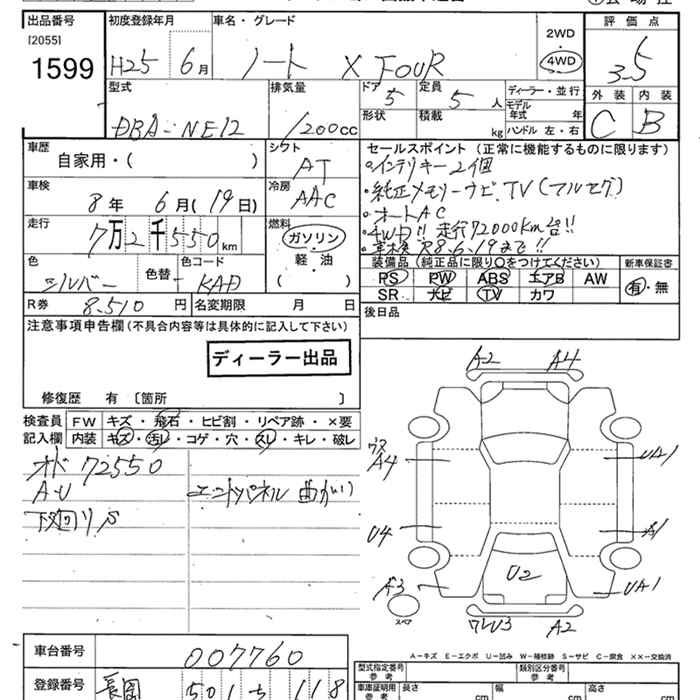 出品番号 初度登録年月 車名・グレード 評価点
[2055] 1599 H25 6月 ノート X FOUR 2WD 4WD 3.5
型式 排気量 ドア 5 定員 5人 ディーラー・並行 外装 内装
DBA-NE12 1200cc 形状 積載 kg モデル年式 年 ハンドル 左・右 C B
車歴 自家用・( ) シフト AT セールスポイント(正常に機能するものに限ります)
・インテリキー2個
車検 8年 6月(19日) 冷房 AAC ・純正メモリーナビ、TV(フルセグ)
・オートAC
走行 7万2千550km 燃料 ガソリン 軽・油 ( ) ・4WD!! 走行72000km台!!
・車検R8.6.19まで!!
色 シルバー 色替 - 色コード KAD 装備品(純正品に限り○をつけてください) 新車保証書
PS PW ABS エアB AW 有・無
SR ナビ TV カワ
R券 8,510円 名変期限 月 日
注意事項申告欄(不具合内容等は具体的に記入して下さい) 後日品
ディーラー出品
修復歴 有 〔箇所 〕
検査員 FW キズ・飛石・ヒビ割・リペア跡・×要
記入欄 内装 キズ・汚レ・コゲ・穴・スレ・キレ・破レ
オド 72550
A・U エンドパネル曲がり
下回りS
A2 A4
A4 UA1
U4 A1
A3 U2 UA1
スペア A2
A−キズ E−エクボ U−凹み W−補修跡 S−サビ C−腐食 ××−交換済
車台番号 007760 型式指定番号 参考 類別区分番号 参考
登録番号 長岡 501 118 車庫証明用 参考 長さ cm 幅 cm 高さ cm